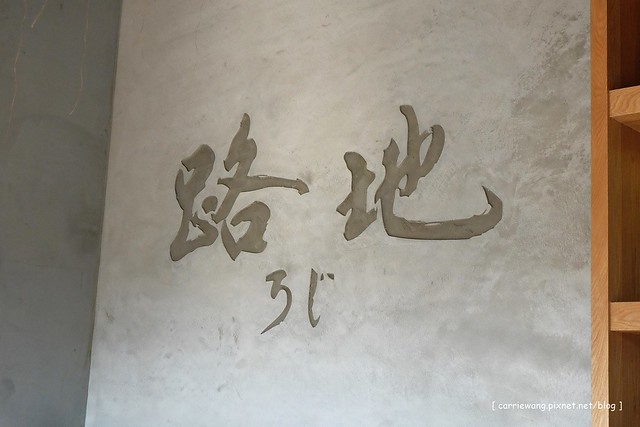 路地
ろじ
[ carriewang.pixnet.net/blog ]